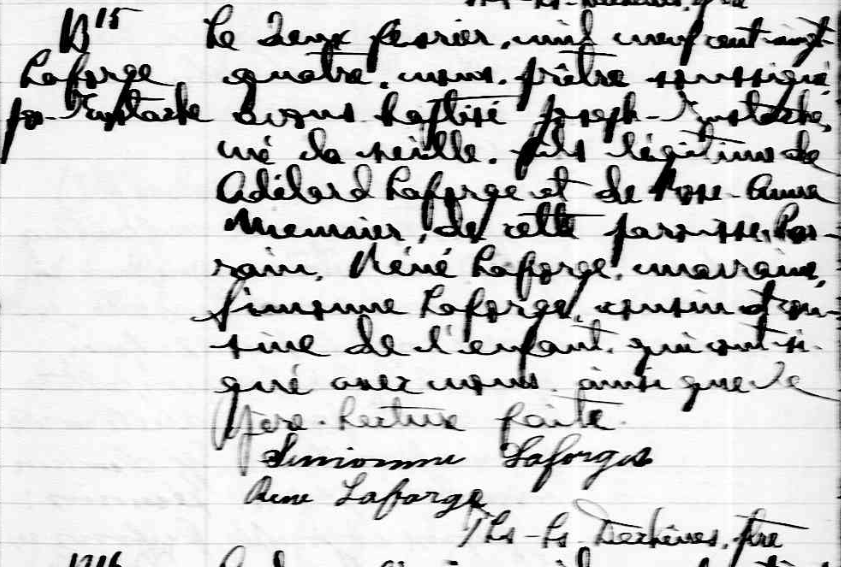 B15
Laforge
Jos-Eustache
Le deux février, mil neuf cent vingt-
quatre, nous, prêtre soussigné,
avons baptisé Joseph-Eustache,
né la veille, fils légitime de
Adélard Laforge et de Rose-Anna
Meunier, de cette paroisse. Par-
rain, Réné Laforge, marraine,
Simonne Laforge, cousin et cou-
sine de l'enfant, qui ont si-
gné avec nous ainsi que le
père. Lecture faite.
Simonne Laforge
Rene Laforge
Ls Deschênes, ptre
B16